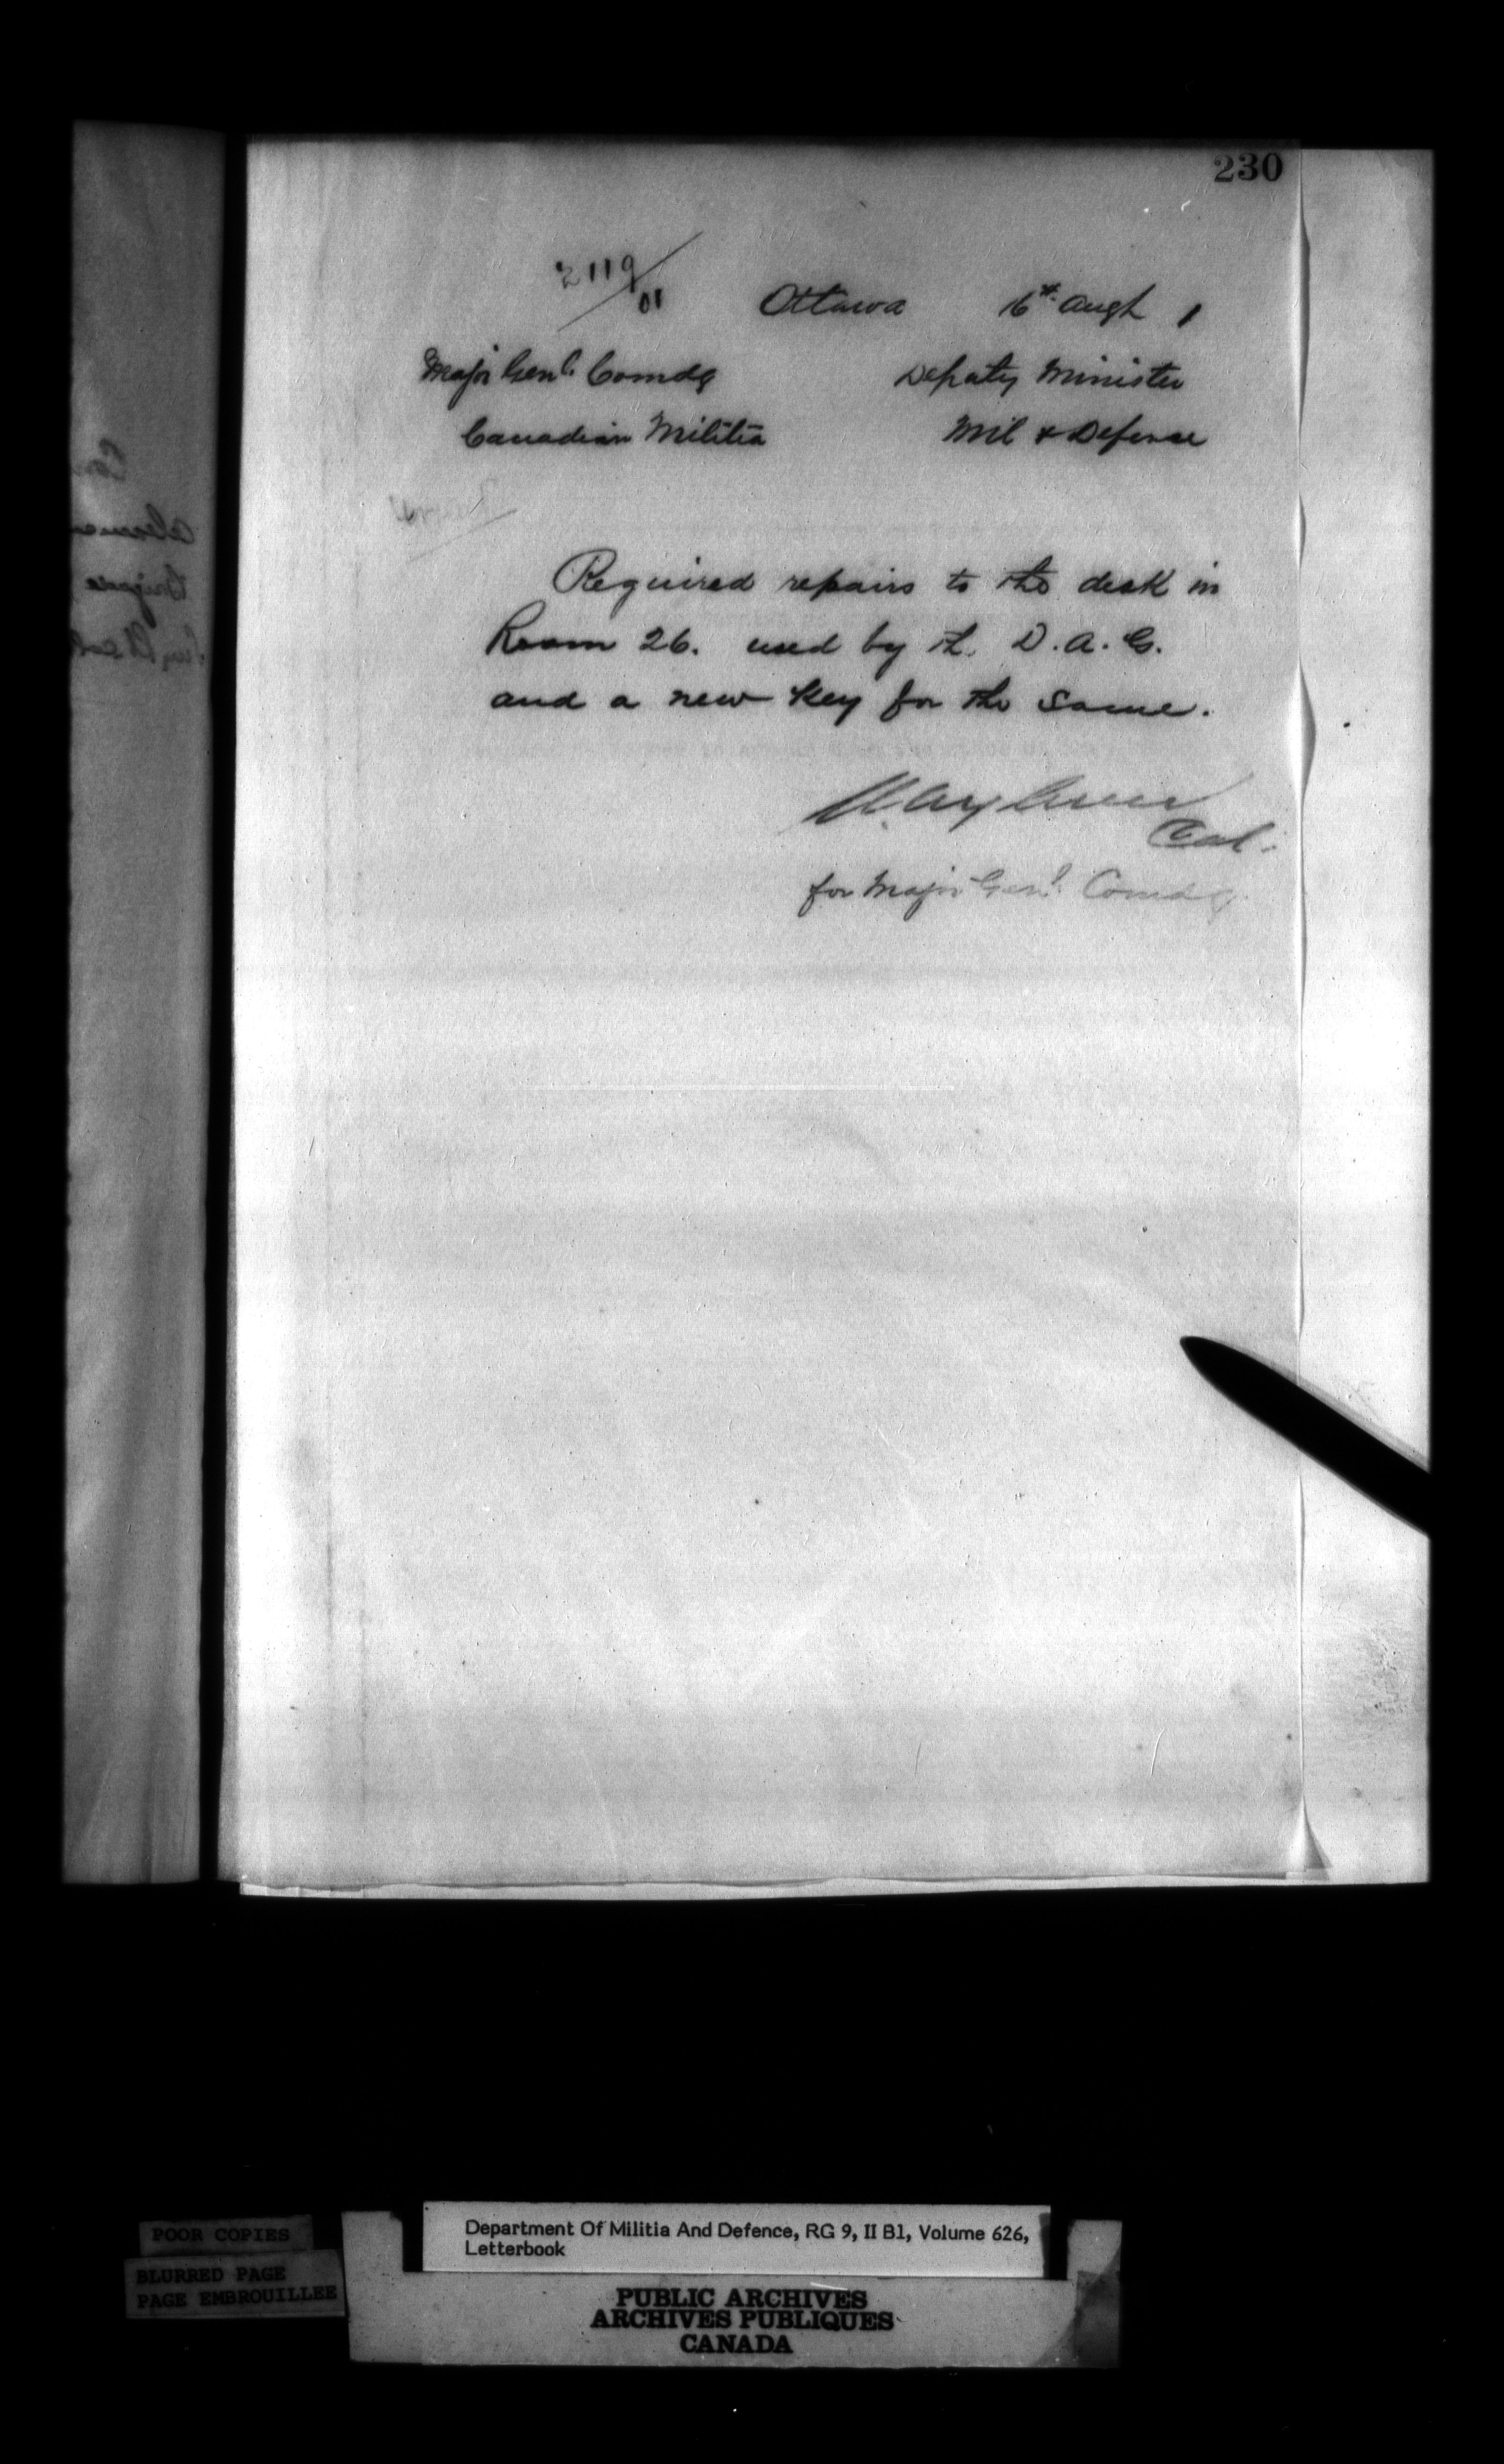 230
2119/01 Ottawa 16th Augt 1
Major Genl. Comdg Deputy Minister
Canadian Militia Mil & Defence
Required repairs to the desk in
Room 26. used by th. D.A.G.
and a new key for the same.
Col.
for Major Genl. Comdg
POOR COPIES
BLURRED PAGE
PAGE EMBROUILLEE
Department Of Militia And Defence, RG 9, II B1, Volume 626,
Letterbook
PUBLIC ARCHIVES
ARCHIVES PUBLIQUES
CANADA